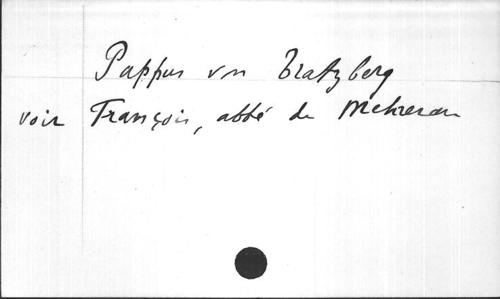 Pappus von Tratzberg
voir François, abbé de Mehrerau